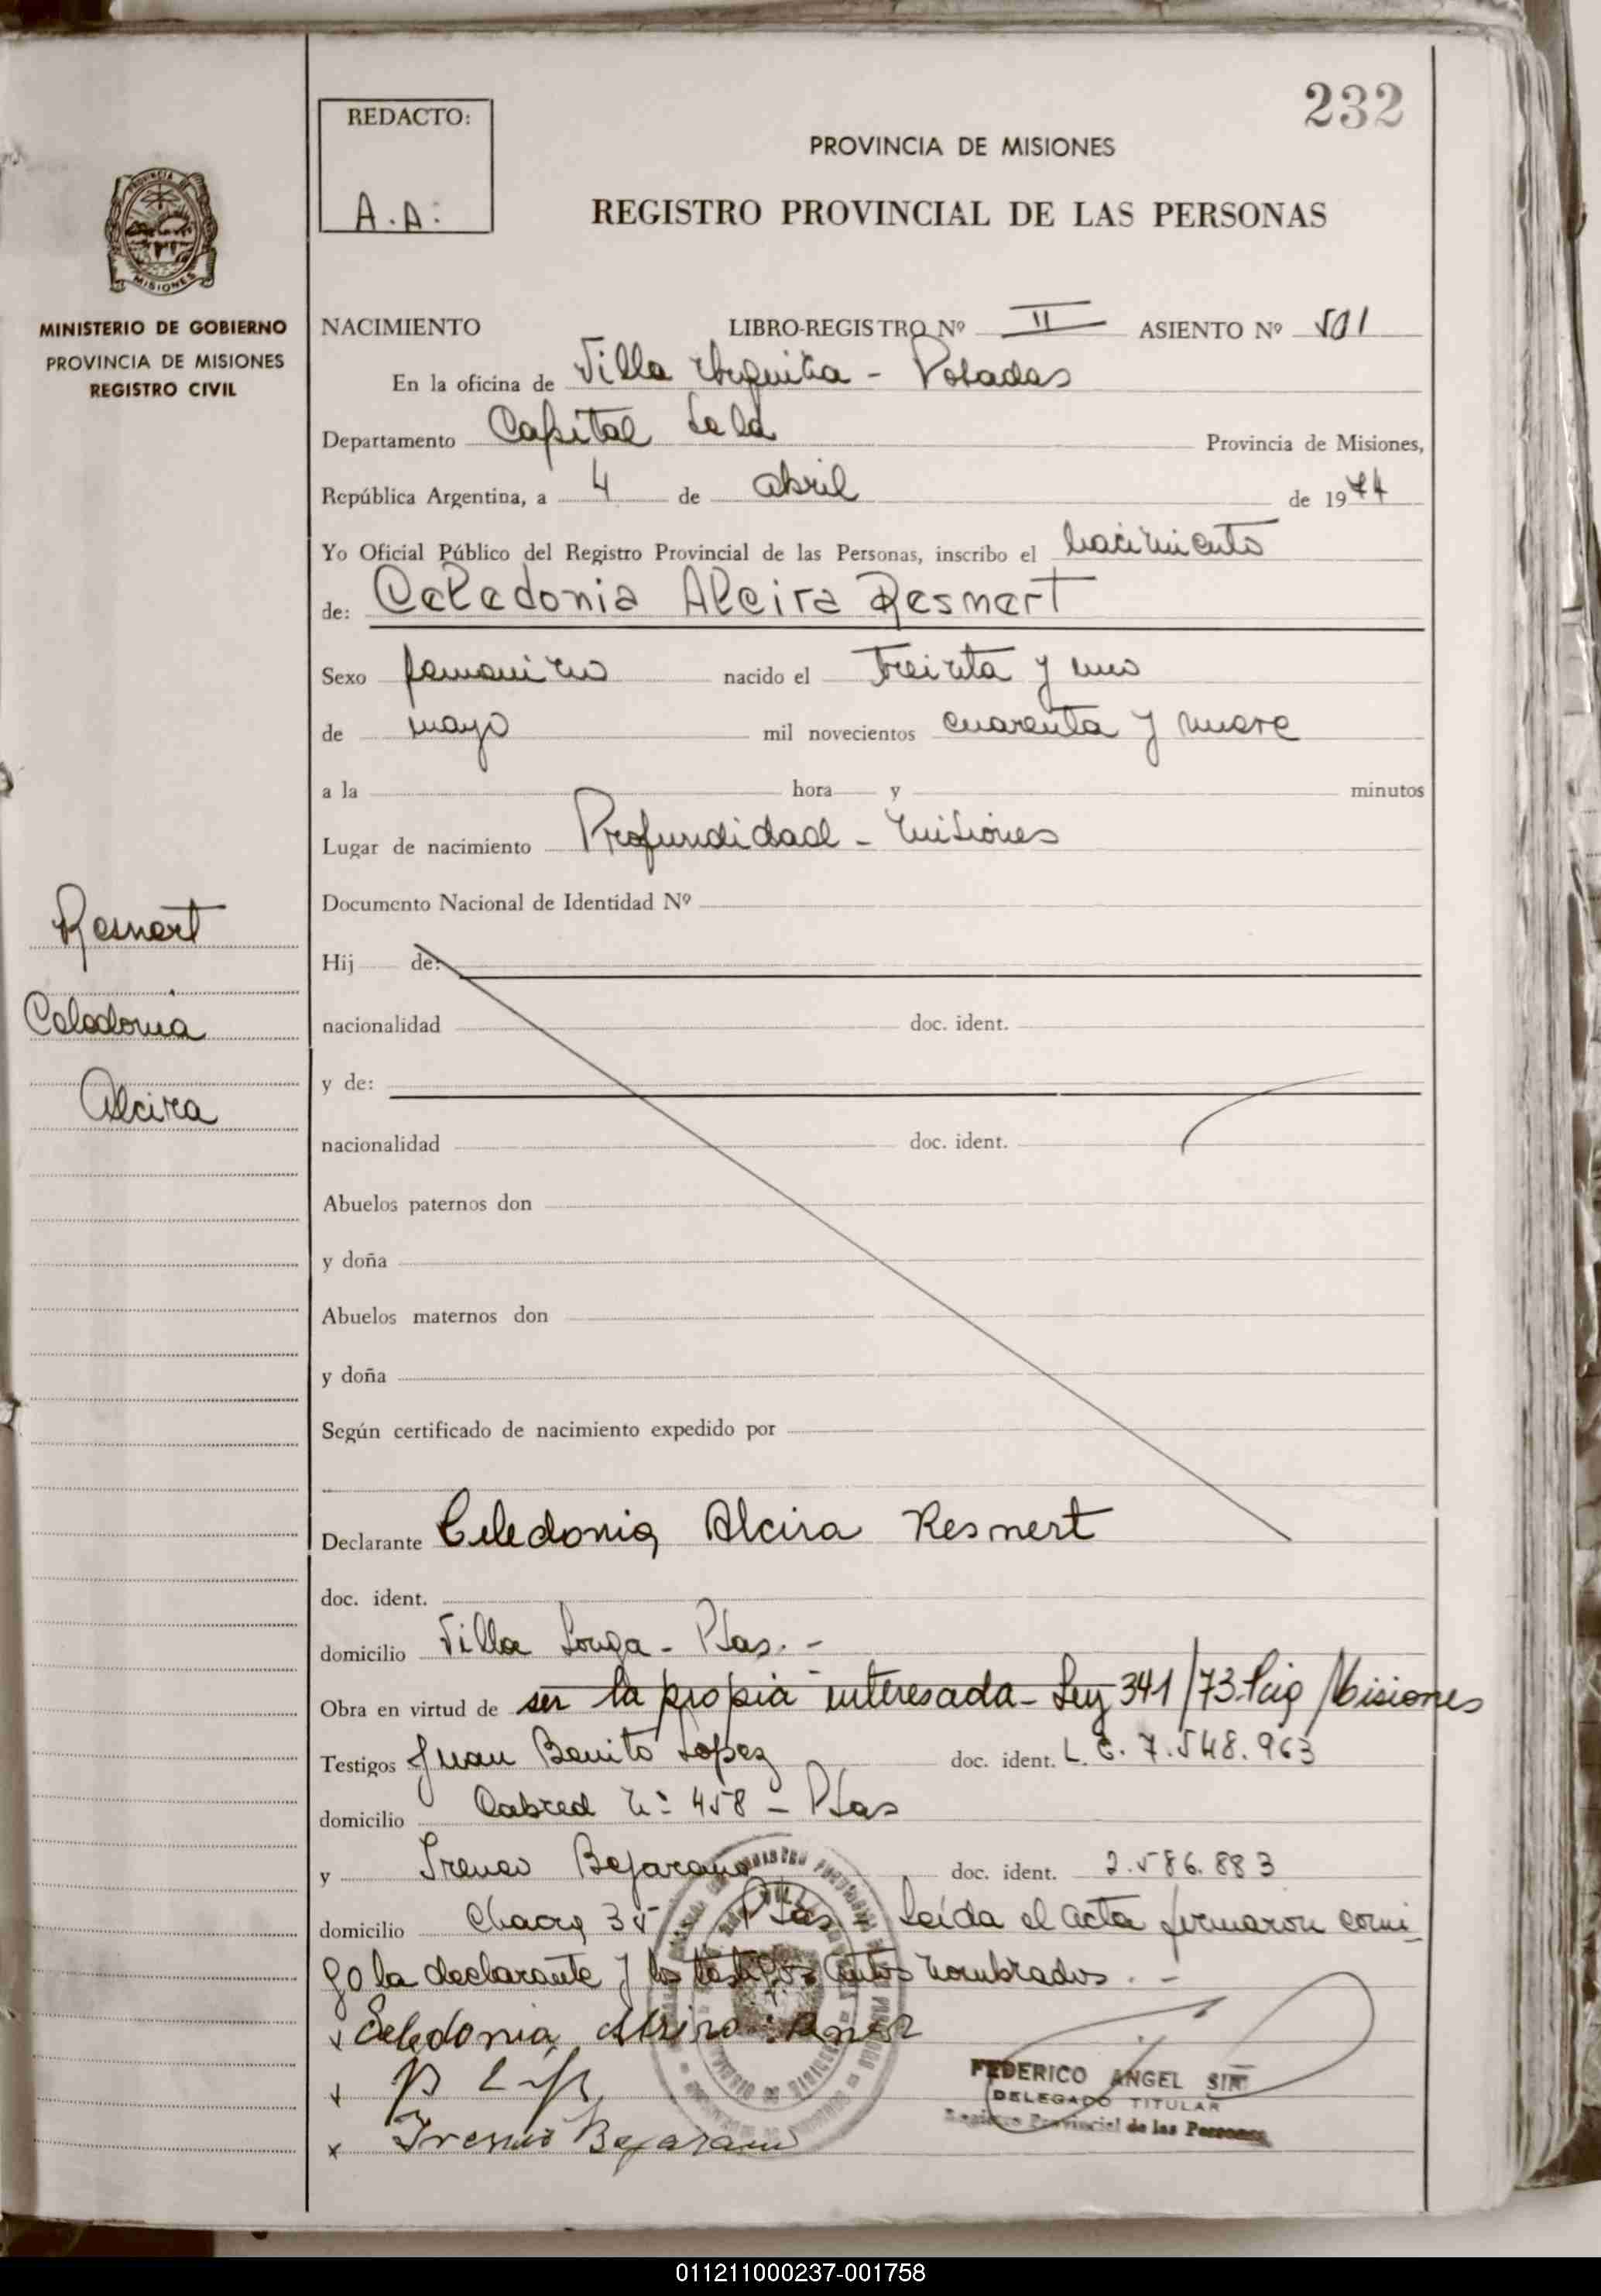 232
REDACTO:
A.A.
PROVINCIA DE MISIONES
REGISTRO PROVINCIAL DE LAS PERSONAS
MISIONES
MINISTERIO DE GOBIERNO
PROVINCIA DE MISIONES
REGISTRO CIVIL
Resnert
Celedonia
Alcira
NACIMIENTO LIBRO-REGISTRO Nº II ASIENTO Nº 501
En la oficina de Villa Urquiza - Posadas
Departamento Capital Provincia de Misiones,
República Argentina, a 4 de abril de 1974
Yo Oficial Público del Registro Provincial de las Personas, inscribo el nacimiento
de: Celedonia Alcira Resnert
Sexo femenino nacido el treinta y uno
de mayo mil novecientos cuarenta y nueve
a la hora y minutos
Lugar de nacimiento Profundidad - Misiones
Documento Nacional de Identidad Nº
Hij de:
nacionalidad doc. ident.
y de:
nacionalidad doc. ident.
Abuelos paternos don
y doña
Abuelos maternos don
y doña
Según certificado de nacimiento expedido por
Declarante Celedonia Alcira Resnert
doc. ident.
domicilio Villa Longa - Pdas. -
Obra en virtud de ser la propia interesada - Ley 341/73 Pcia Misiones
Testigos Juan Benito Lopez doc. ident. L.E. 7.548.963
domicilio Cabred Nº 458 - Pdas
y Ireneo Bejarano doc. ident. 2.586.883
domicilio Chacra 35 Pdas Leída el acta firmaron conmi-
go la declarante y los testigos antes nombrados. -
x Celedonia Alcira
x
x Ireneo Bejarano
FEDERICO ANGEL SIR
DELEGADO TITULAR
Registro Provincial de las Personas
011211000237-001758